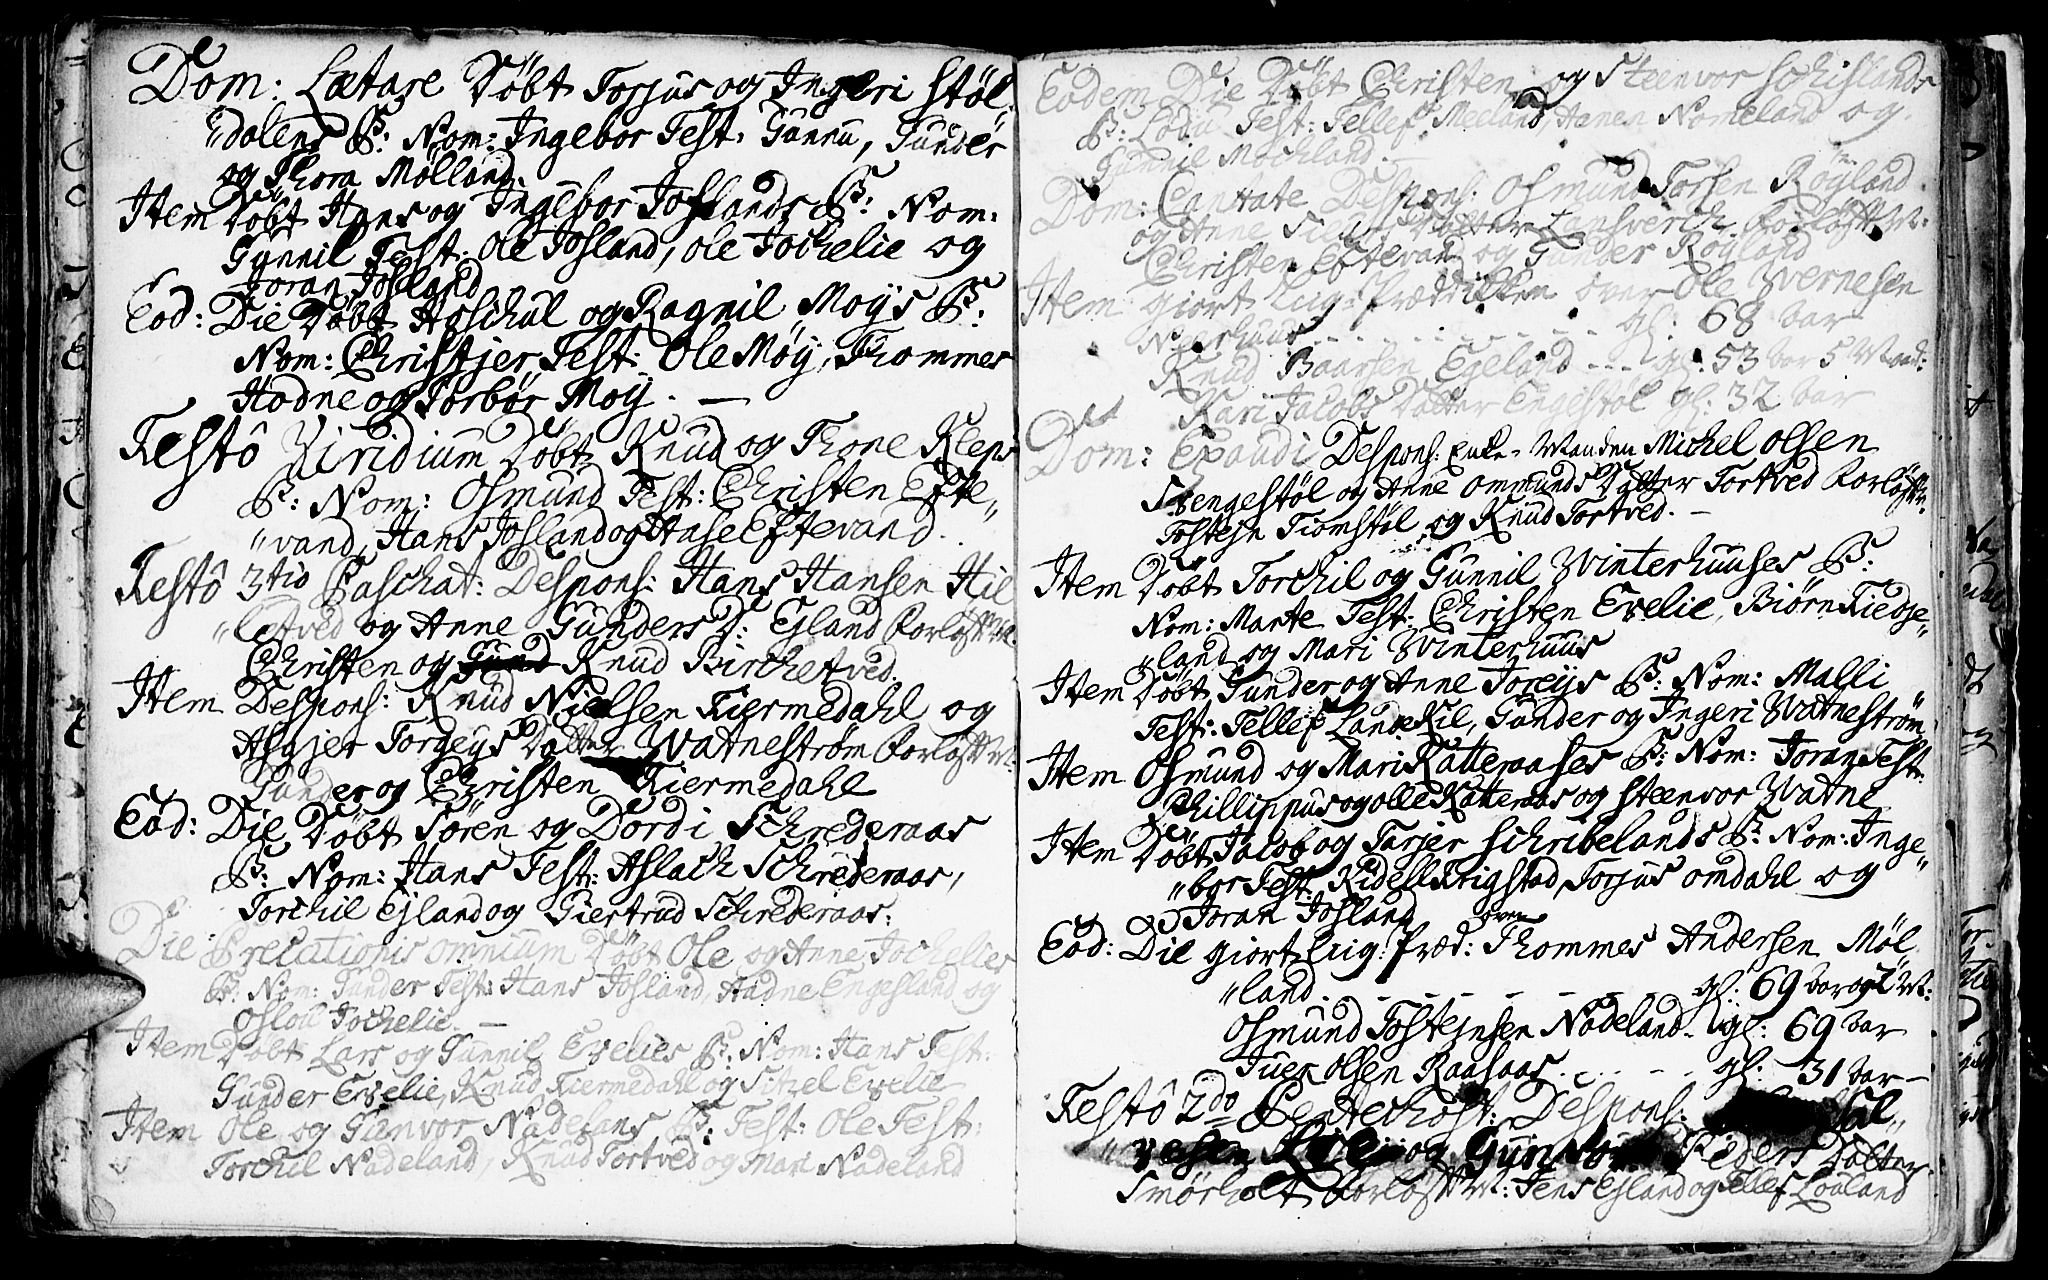 Dom: Lætare Døbt Torjus og Ingeri Støl„
„dalens B: Nom: Ingebor Test: Gunnu, Gunder
og Thora Mølland.
Item Døbt Hans og Ingebor Joslands B: Nom:
Gunnil Test: Ole Josland, Ole Jochelie og
Joran Josland
Eod: Die Døbt Aoschul og Ragnil Moÿs B:
Nom: Christjer Test: Ole Møÿ, Thommes
Hodne og Torbør Moÿ. —
Festô Viridium Døbt Knud og Thone Kleps
B: Nom: Osmund Test: Christen Efte„
„vand, Hans Josland og Aase Eftevand.
Festô 3tio Paschat: Despons: Hans Hansen Hil
„letved og Anne Gunders D: Egland Forløft M:
Christen og Knud Birchetved.
Item Despons: Knud Nielsen Fiermedahl og
Asgjer Torgeÿs Datter Watnestrøm Forløft M:
Gunder og Christen Fiermedahl
Eod: Die Døbt Søren og Dordi Schrederaas
B: Nom: Hans Test: Aslach Schrederaas,
Torchil Egland og Giertrud Schrederaas:
Die Precationis omnium Døbt Ole og Anne Jochelies
B: Nom: Gunder Test: Hans Josland, Aadne Engesland og
Oslou Jochelie. —
Item Døbt Lars og Gunnil Evelies B: Nom: Hans Test:
Gunder Evelie, Knud Fiermedahl og Sitzel Evelie
Item Ole og Gunvor Nadelans B: Test: Ole Test:
Torchil Nadeland, Knud Tortved og Mari Nadeland
Eodem Die Døbt Christen og Steenvor Schislands
B: Lodu Test: Tellef Meeland, Anen Nomeland og
Gunnil Mochland. —
Dom: Cantate Despons: Osmund Torsen Røÿland
og Anne Datter Forløft M:
Christen Eftevand og Gunder Røÿland
Item giort Liig: Prædikken over Ole Wernesen
- - - gl: 68 aar
Knud Baarsen Egeland - - - gl: 53 aar 5 Maad:
Kari Jacobs Datter Engestøl gl: 32 aar
Dom: Exaudi Despons: Enke-Manden Michel Olsen
Svengestøl og Anne Ommunds Datter Tortved Forløft M:
Tostejn Tiomstøl og Knud Tortved. —
Item Døbt Torchil og Gunnil Winterhuuses B:
Nom: Marte Test: Christen Evelie, Biørn Fiedje„
„land og Mari Winterhuus
Item Døbt Gunder og Anne Toreÿs B: Nom: Malli
Test: Tellef LandeKil, Gunder og Ingeri Watnestrøm
Item Osmund og Mari Katteraases B: Nom: Joran Test:
Phillippus og Olle Katteraas og Steenvor Watne
Item Døbt Jacob og Tarjer Schribelands B: Nom: Inge„
„bor Test: Kidell Frigstad, Torjus Omdahl og
Joran Josland
Eod: Die giort Liig: Præd: over Thommes Andersen Møl
„land. - - - - gl: 69 aar og M:
Osmund Tostejnsen Nadeland - gl: 69 aar
Juer Olsen Raasaas. - - - gl: 31 aar —
Festô 2do Pentechost: Despons:
og Peders Datter
Smørholt Forløft M: Jens Egland og Tellef Louland